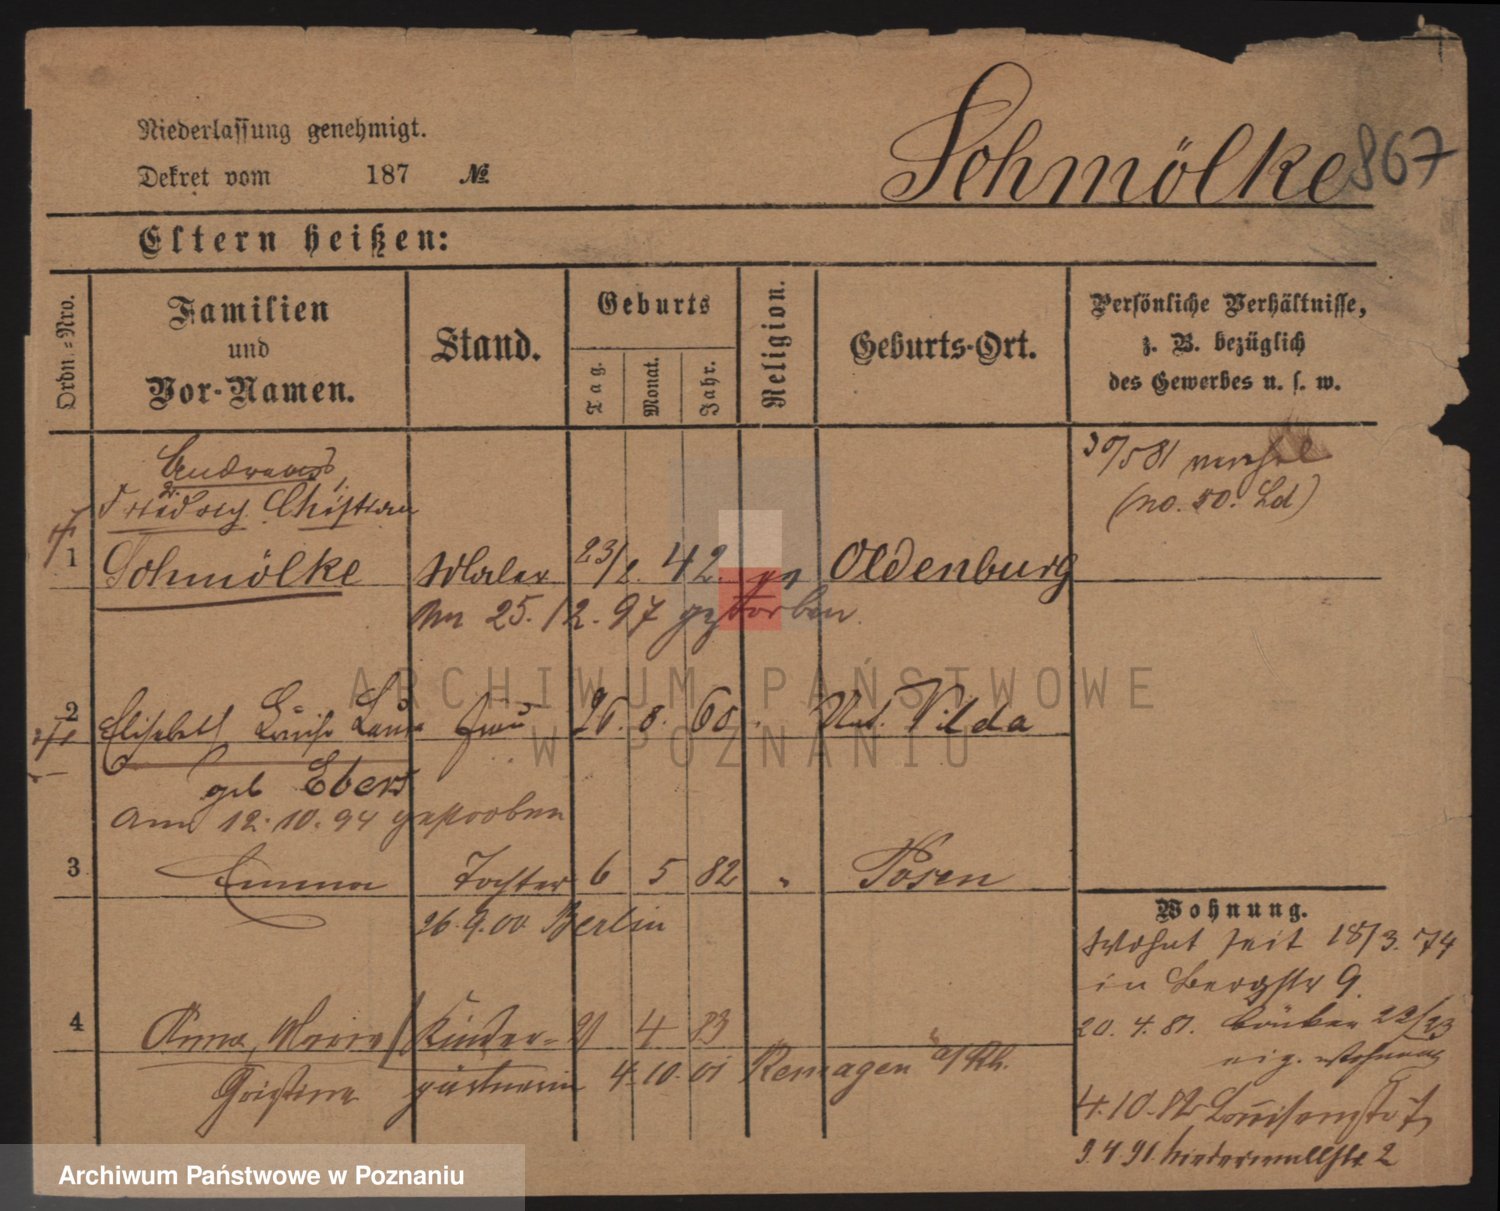 Niederlassung genehmigt.
Dekret vom 187 №
Schmölke 867
Eltern heißen:
Ordn.-Nro.
Familien
und
Vor-Namen.
Stand.
Geburts
Tag.
Monat.
Jahr.
Religion.
Geburts-Ort.
Persönliche Verhältnisse,
z. B. bezüglich
des Gewerbes u. s. w.
Andreas
Friedrich Christian
1 Schmölke Maler 23/2. 42. Oldenburg
am 25.12.97 gestorben
30/5 81
(No. 50. Ld)
2 Elisabeth Louise Laura Frau 26. 8. 60 Unt. Wilda
geb Ebert
am 12.10.94 gestorben
3 Emma Tochter 6 5 82 " Posen
26.9.00 Berlin
4 Anna, Maria Kinder- 4 83
Christine gärtnerin 4.10.01 Remagen a/Rh.
Wohnung.
Wohnt seit 18/3. 74
in Bergstr 9.
20.4.81. 22/23
eig. Wohnung
4.10.82 Louisenstr
9.4.91. Niederwallstr 2
ARCHIWUM PAŃSTWOWE
W POZNANIU
Archiwum Państwowe w Poznaniu